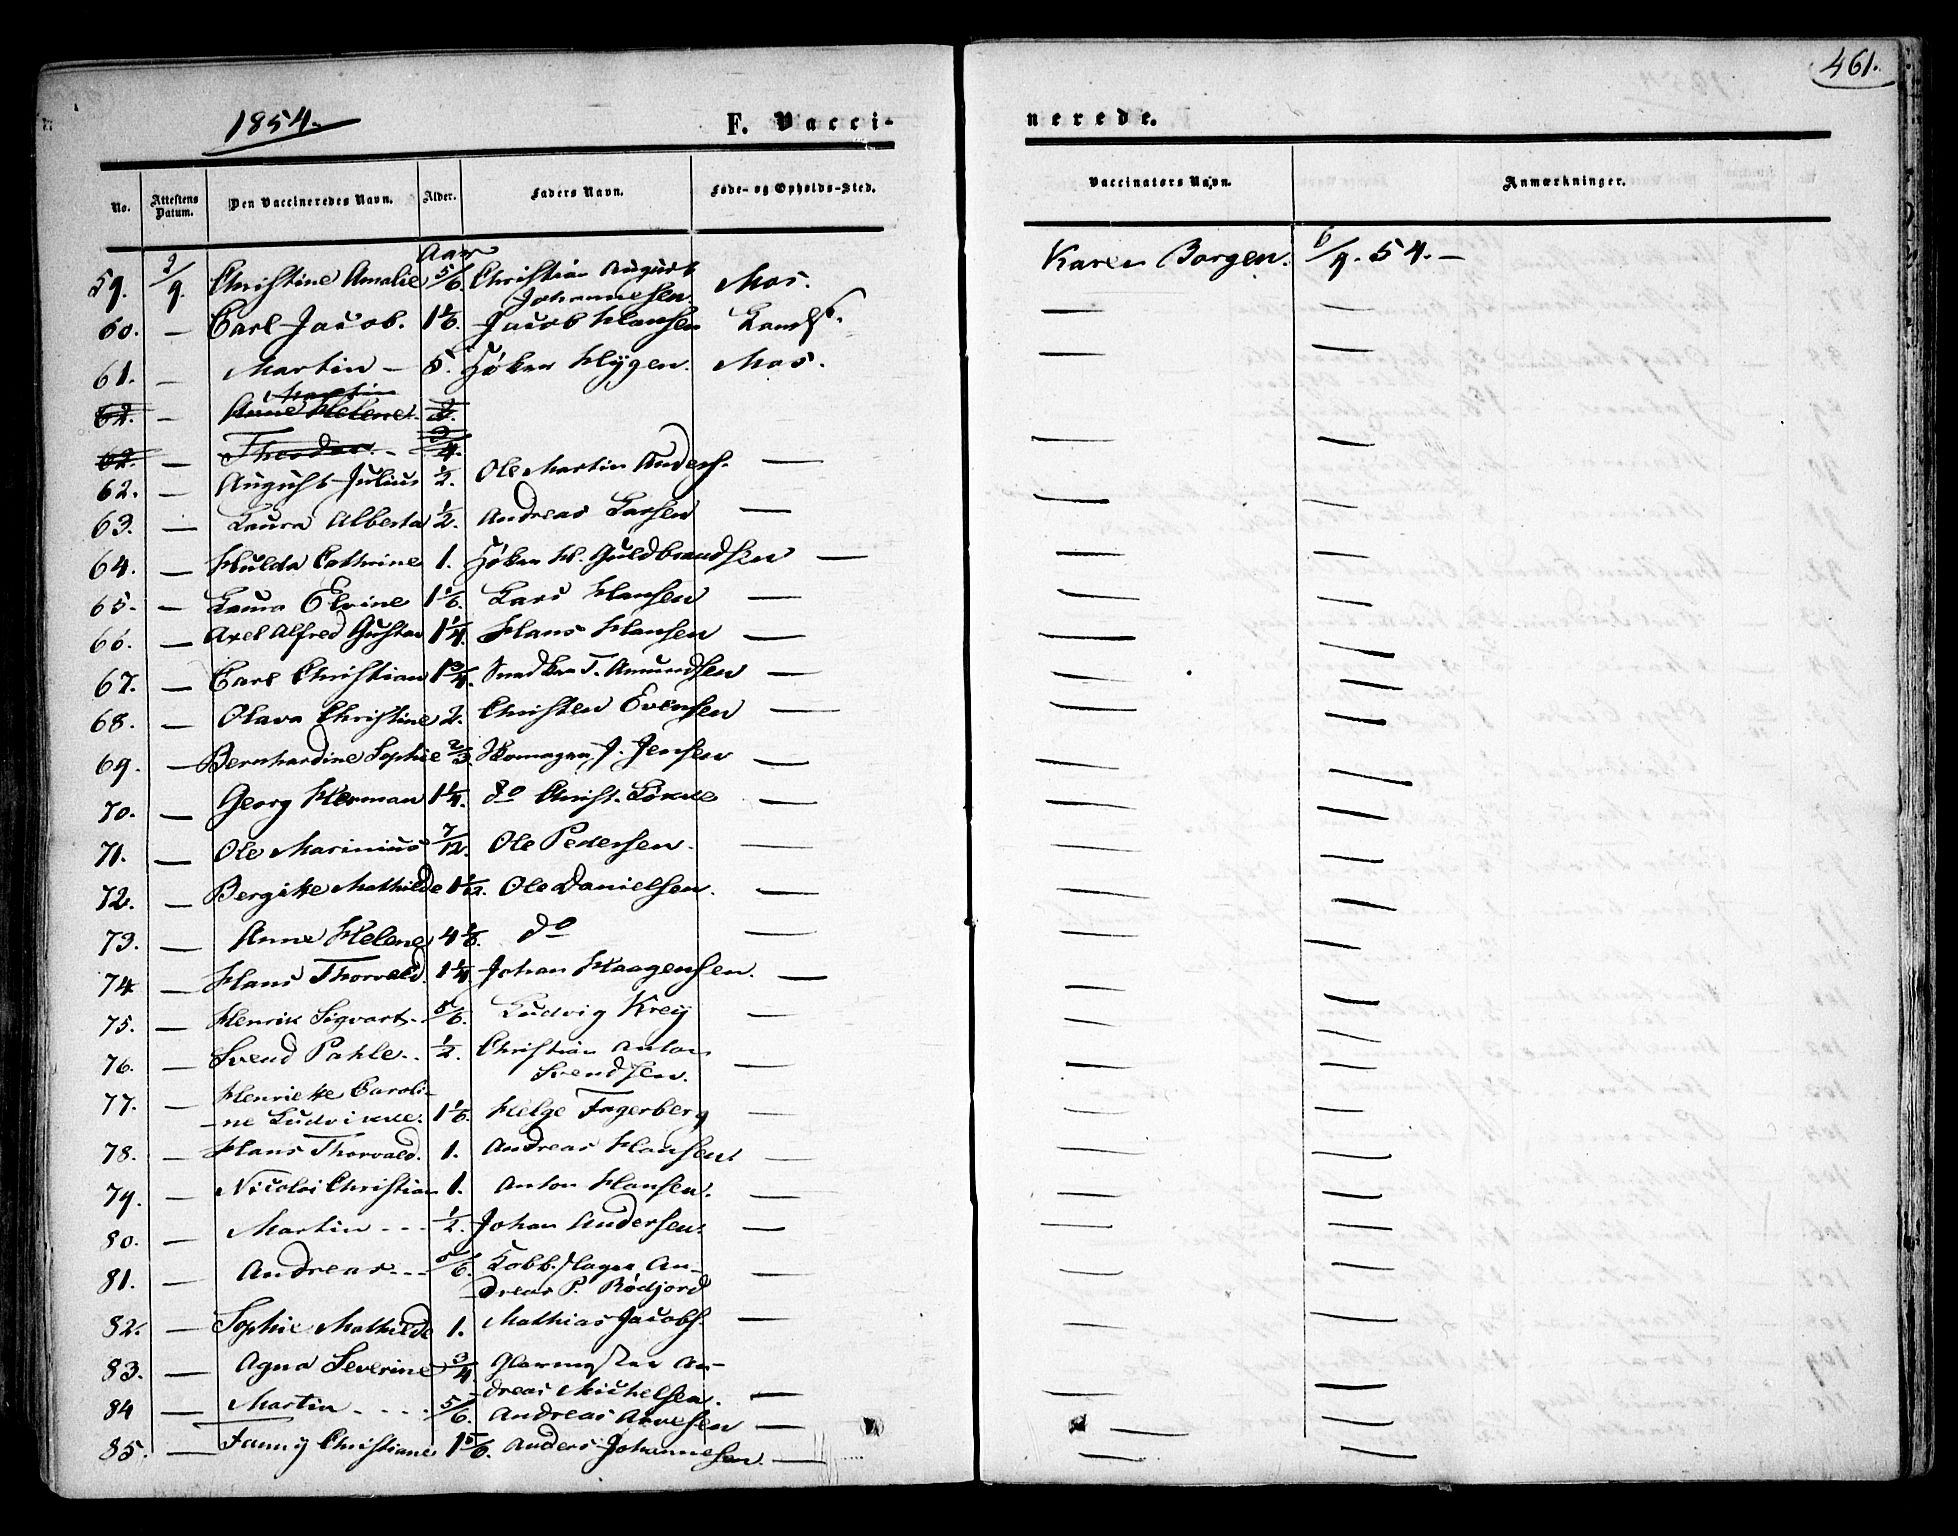 461.
1854.
F. Vacci-
nerede.
No. Attestens Datum. Den Vaccineredes Navn. Alder. Faders Navn. Føde- og Opholds-Sted. Vaccinators Navn. Anmærkninger.
Aar
59. 2/9. Christine Amalie 5/6. Christian August Johannesen Mos. Karen Borgen. 6/9. 54. —
60. — Carl Jacob. 1 1/6. Jacob Hansen — —
61. — Martin — 5. Høker Hygen. Mos. — —
Martin
62. — Anne Helene. 
62. — Theodor. - 3/4. — —
62. — August Julius 1/2. Ole Martin Anders. —
63. — Laura Alberta 1/2. Andreas Larsen — — —
64. — Hulda Cathrine 1. Høker H. Guldbrandsen — — —
65. — Laura Elvine 1 1/6. Lars Hansen — — —
66. — Axel Alfred Gustav 1 1/4. Hans Hansen — — —
67. — Carl Christian 1 3/4. Snedker T. Amundsen — — —
68. — Olava Christine 2. Christen Evensen — — —
69. — Bernhardine Sophie 2/3. J. Jensen — — —
70. — Georg Herman 1 1/4. do Christ. — — —
71. — Ole Marinius 7/12. Ole Pedersen. — — —
72. — Bergitte Mathilde 1 1/12. Ole Danielsen. — — —
73. — Anne Helene 4 1/6. do — — —
74 — Hans Thorvald. 1 1/4. Johan Haagensen. — — —
75. — Henrik Sigvart. - 5/6. Ludvig Krey — — —
76. — Svend Pahle. - 1/2. Christian Anton
Svendsen. — — —
77. — Henriette Caroli-
ne Ludvikke. 1 1/6. Helge Fagerberg — — —
78. — Hans Thorvald. 1. Andreas Hansen — — —
79. — Nicolai Christian 1. Anton Hansen. — — —
80. — Martin - - - 1/2. Johan Andersen. — — —
81. — Andreas - - - 5/6. Kobberslager An-
dreas P. Rødfjord — — —
82. — Sophie Mathilde 1. Mathias Jacobs. — — —
83. — Agna Severine 3/4 Glarmester An-
dreas Michelsen. — — —
84 — Martin - - - - 5/6. Andreas Arvesen — — —
85. — Fanny Christiane 1 5/6. Anders Johannesen. — — —